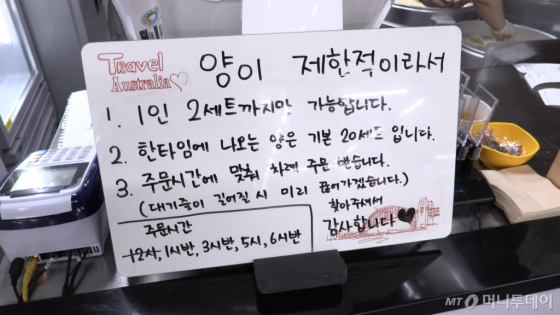 Travel
Australia
양이 제한적이라서
1. 1인 2세트까지만 가능합니다.
2. 한타임에 나오는 양은 기본 20세트 입니다.
3. 주문시간에 맞춰 차례 주문 받습니다.
(대기줄이 길어질 시 미리 끊어가겠습니다.)
주문시간
12시, 1시반, 3시반, 5시, 6시반
찾아주셔서
감사합니다
MT 머니투데이